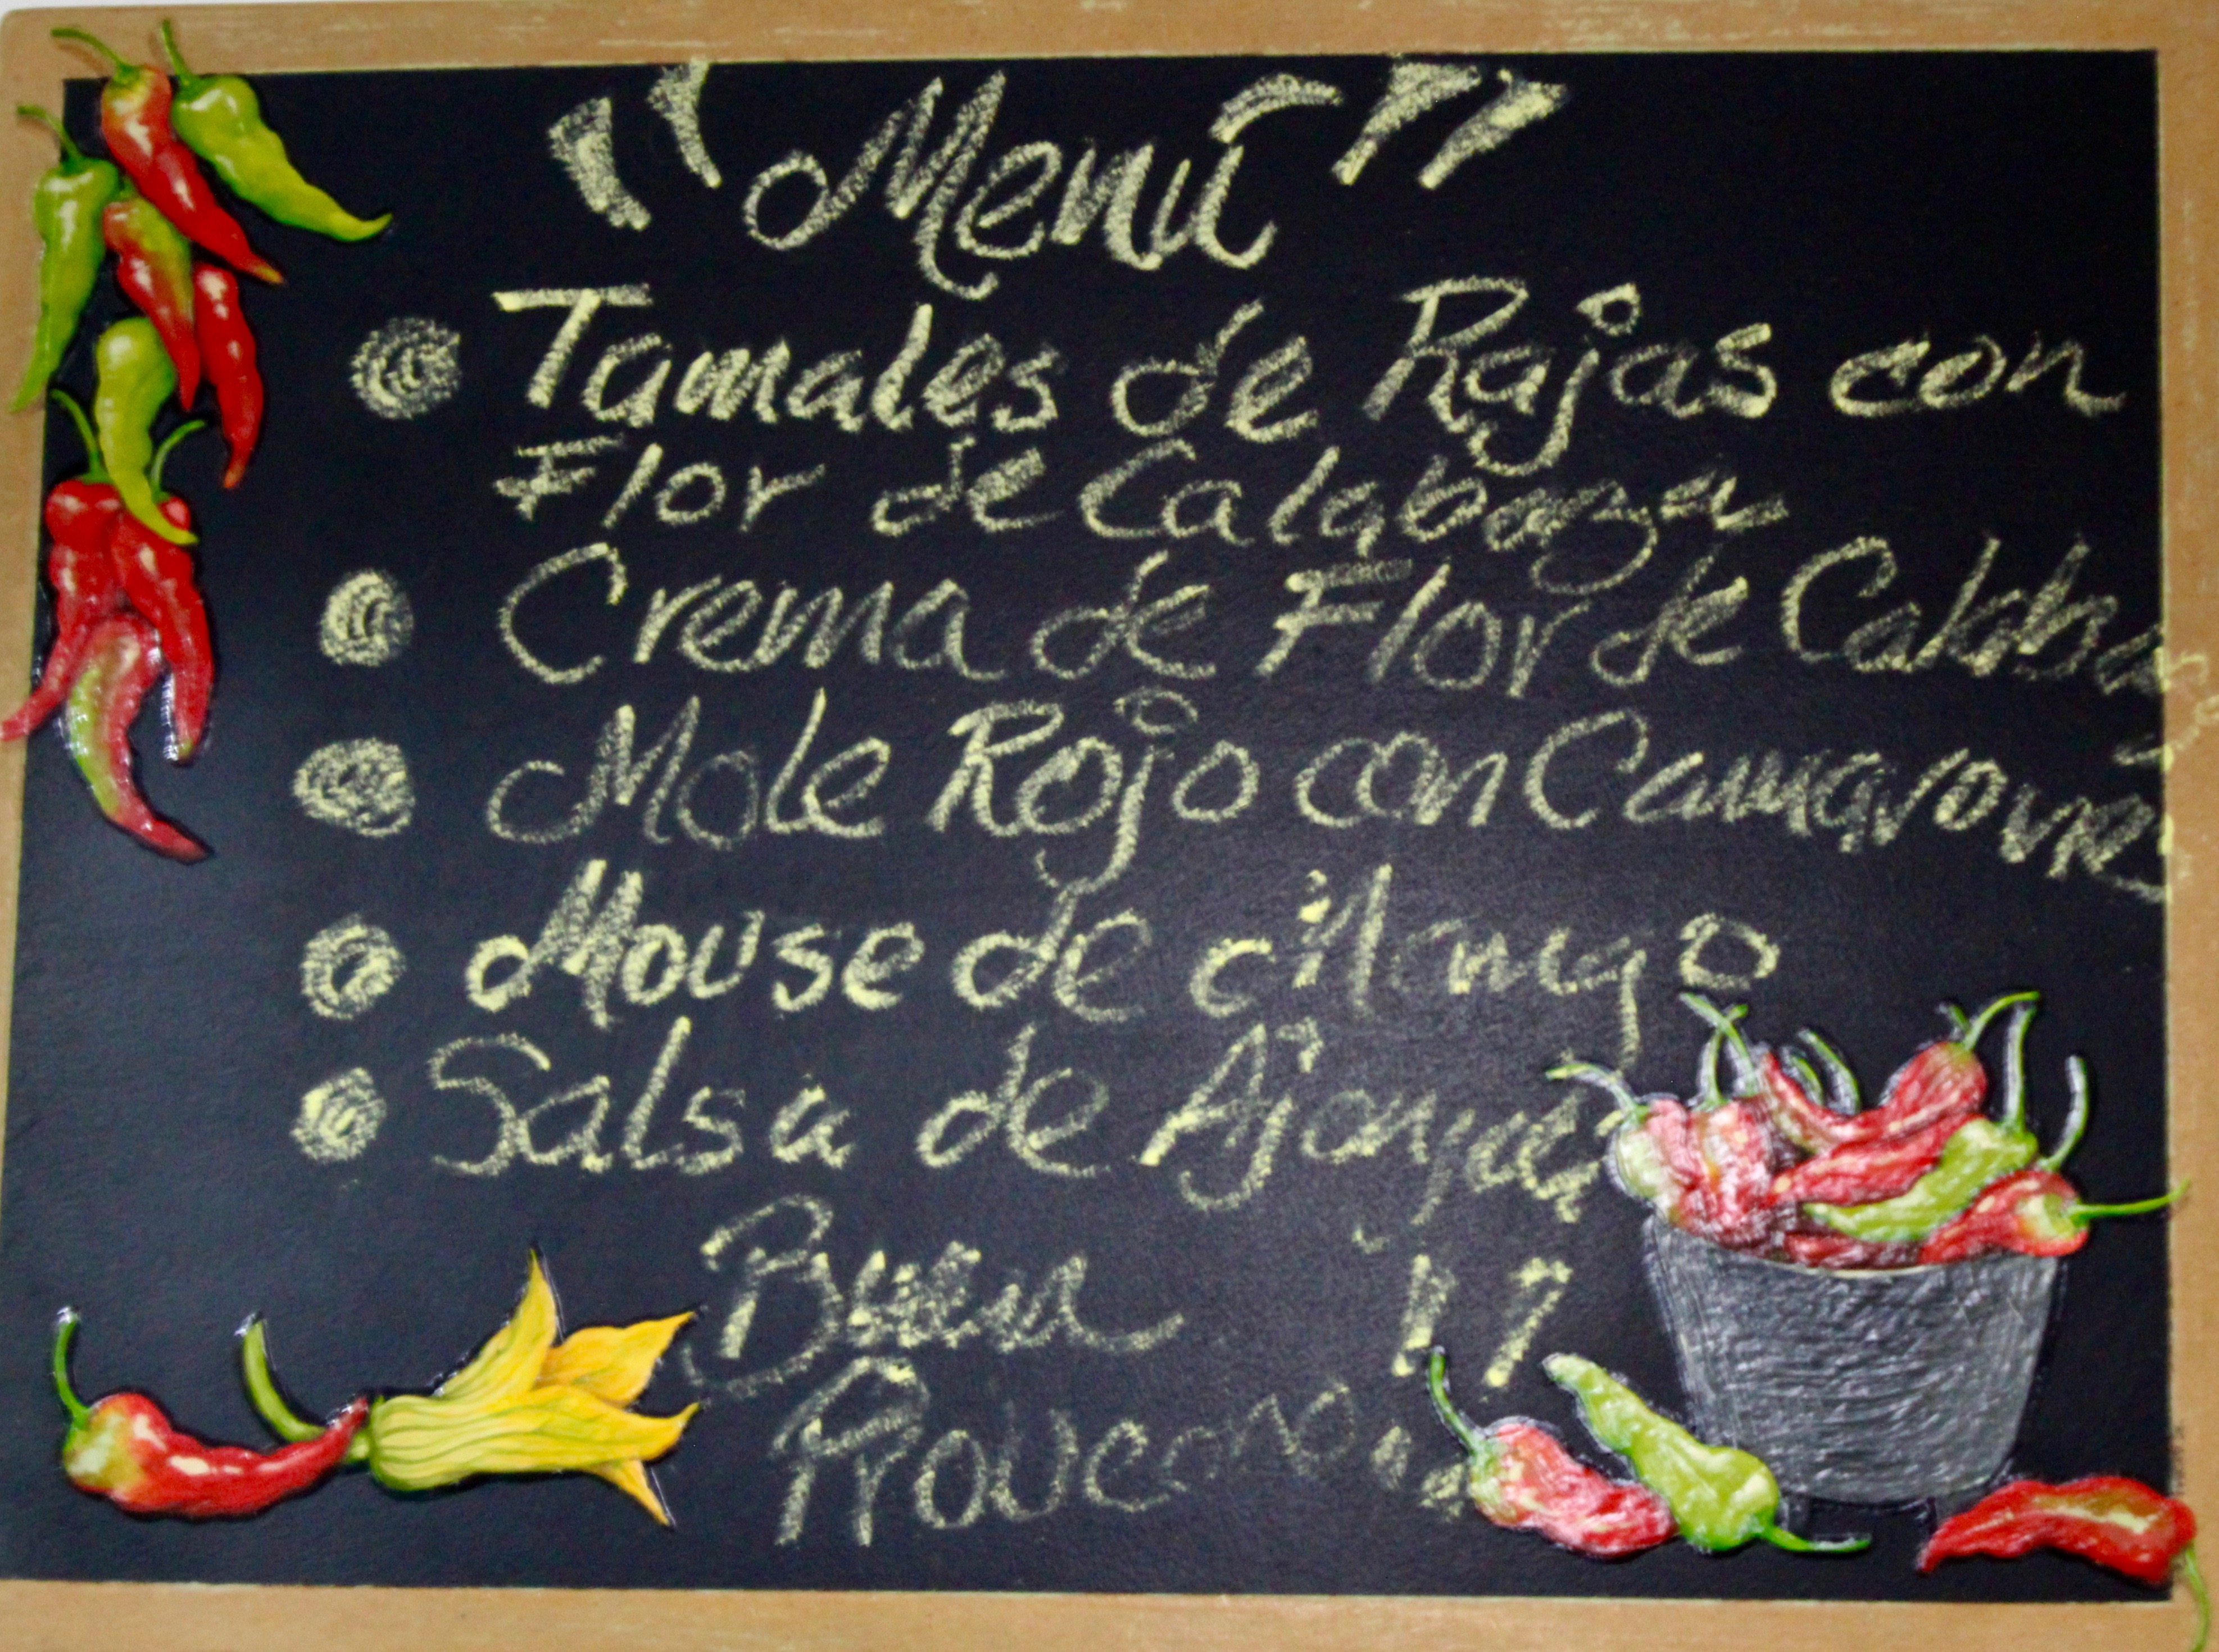 "Menú"
Tamales de Rajas con
Flor de Calabaza
Crema de Flor de Calabaza
Mole Rojo con Camarones
Mouse de Mango
Salsa de Ajonjolí
Buen
Provecho!!